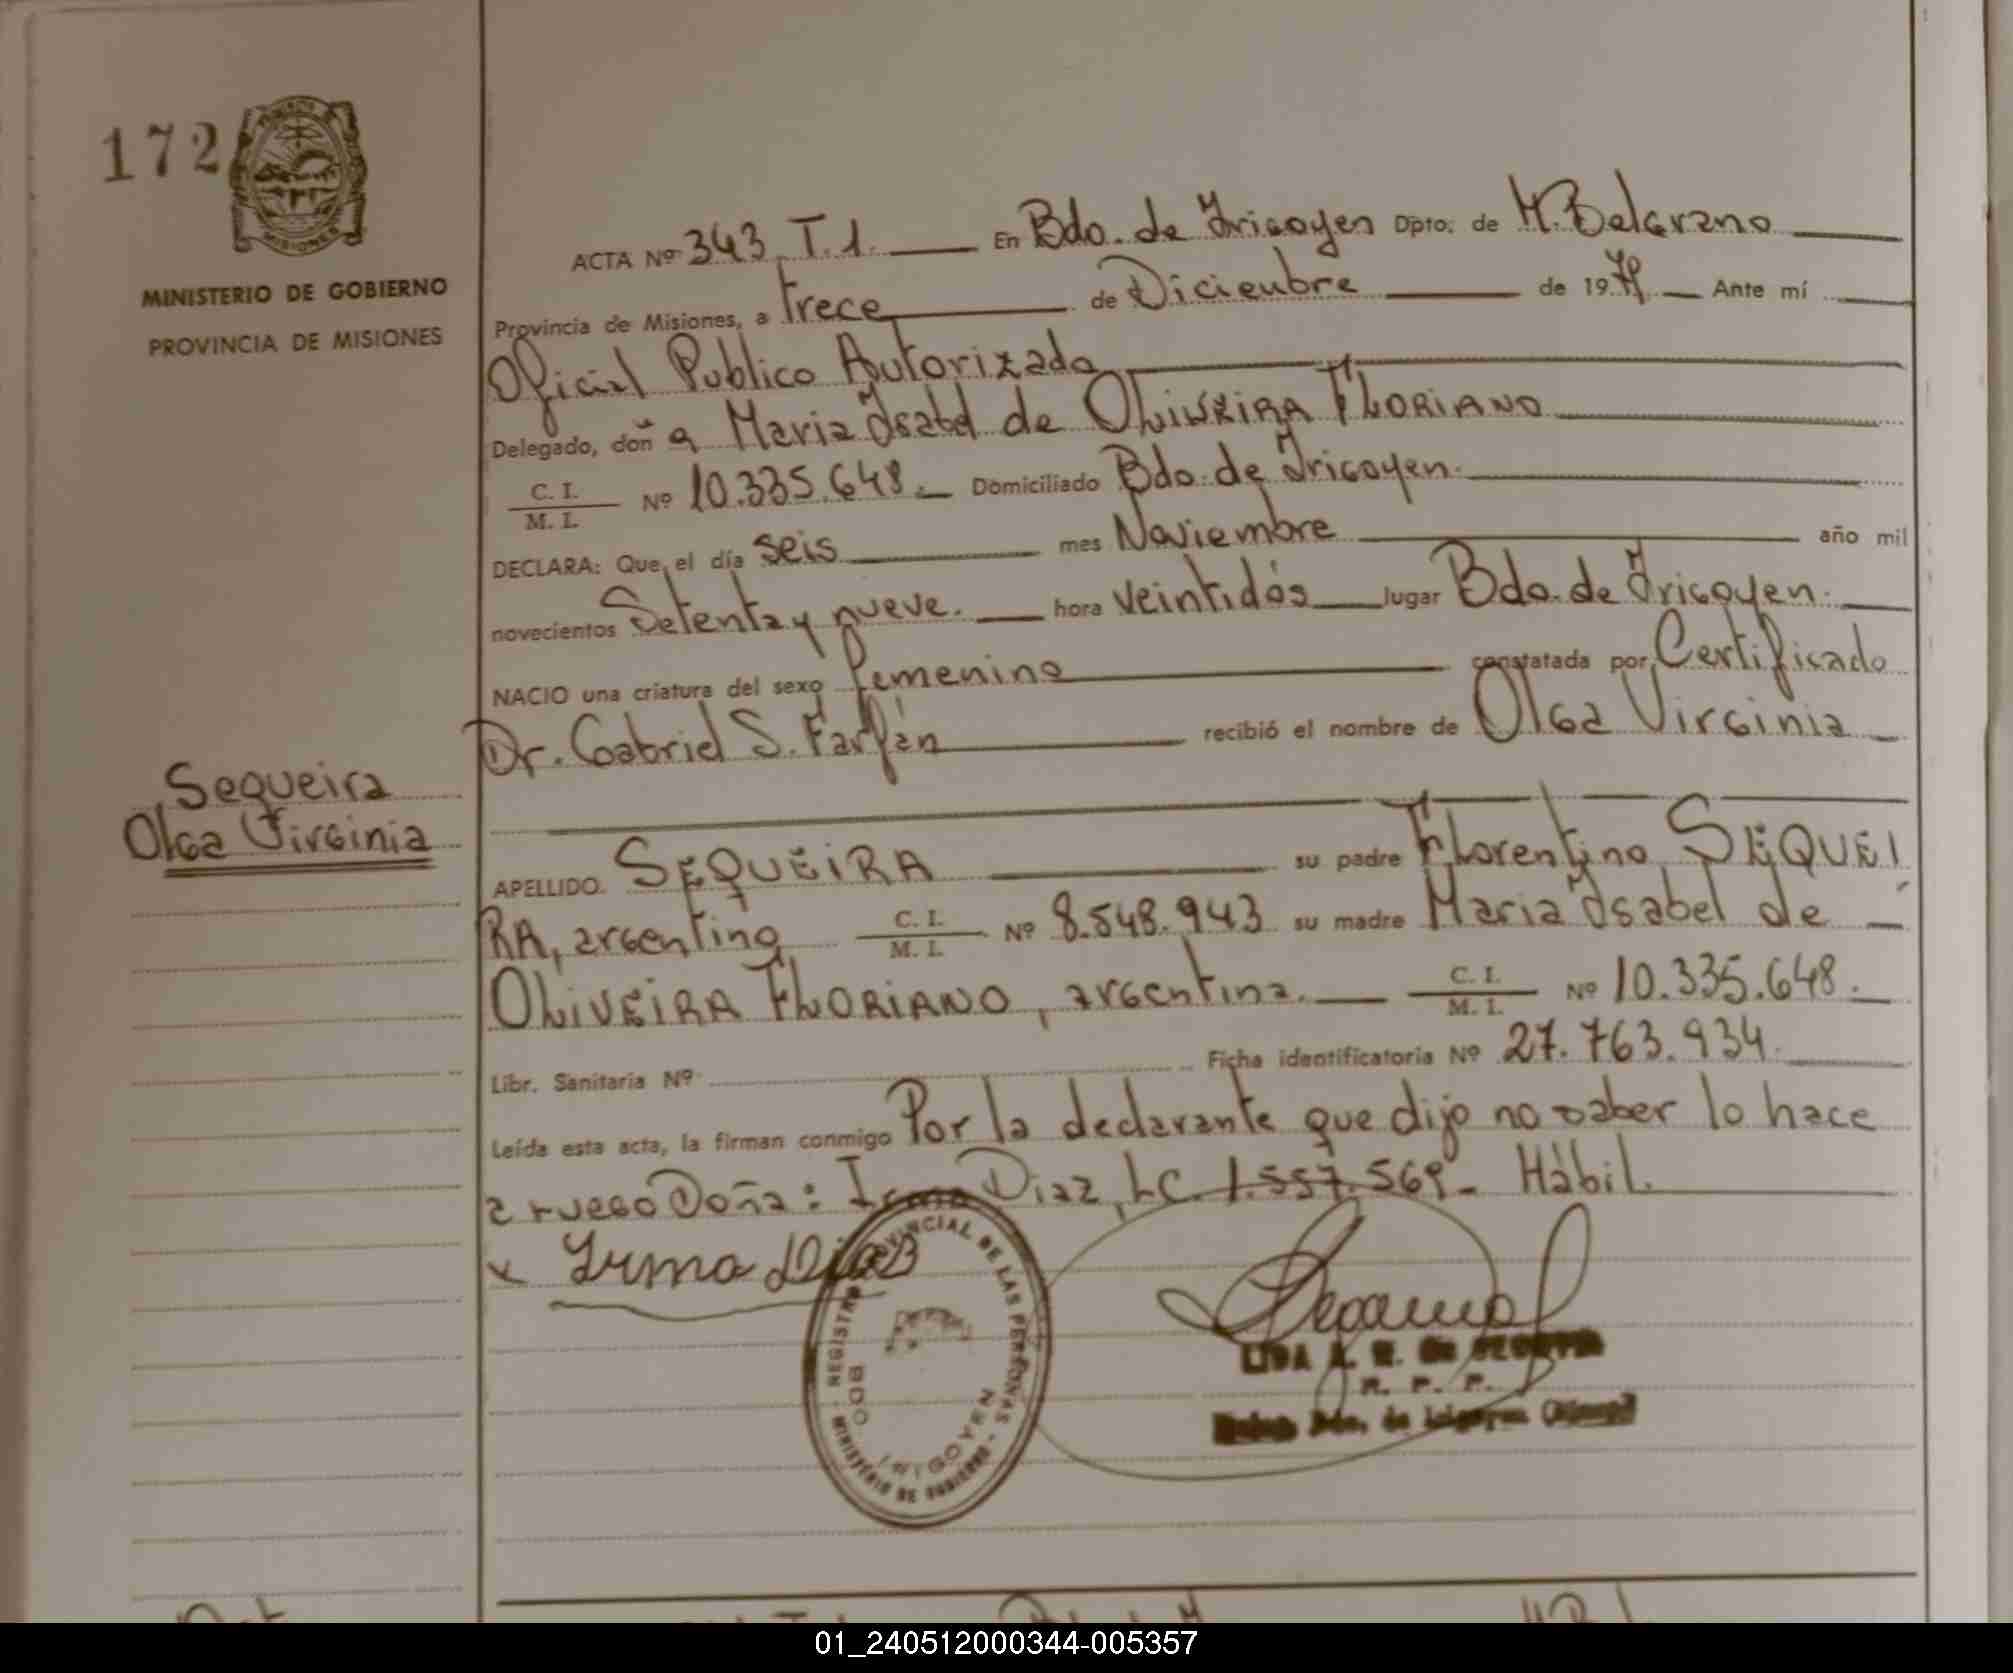 172
MINISTERIO DE GOBIERNO
PROVINCIA DE MISIONES
ACTA Nº 343 T.1. En Bdo. de Irigoyen Dpto. de M. Belgrano
Provincia de Misiones, a trece de Diciembre de 1979 Ante mí
Oficial Publico Autorizado
Delegado, doñ a Maria Isabel de OLIVEIRA FLORIANO
C. I. / M. I. Nº 10.335.648. Domiciliado Bdo. de Irigoyen.
DECLARA: Que el día seis mes Noviembre año mil
novecientos Setenta y nueve. hora veintidós lugar Bdo. de Irigoyen.
NACIO una criatura del sexo femenino constatada por Certificado
Dr. Gabriel S. Farfán recibió el nombre de Olga Virginia
Sequeira
Olga Virginia
APELLIDO SEQUEIRA su padre Florentino SEQUEI
RA, argentino C. I. / M. I. Nº 8.548.943 su madre Maria Isabel de
OLIVEIRA FLORIANO, argentina. C. I. / M. I. Nº 10.335.648.
Libr. Sanitaria Nº Ficha identificatoria Nº 27.763.934.
Leída esta acta, la firman conmigo Por la declarante que dijo no saber lo hace
a ruego Doña: Irma Diaz, LC. 1.557.569. Hábil.
x Irma Diaz
REGISTRO PROVINCIAL DE LAS PERSONAS
MINISTERIO DE GOBIERNO
BDO
IRIGOYEN
LIDA
R. P. P.
Bdo. de Irigoyen
01_240512000344-005357